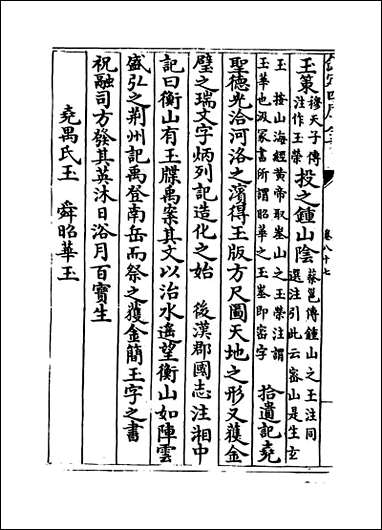 卷八十七
玉策 穆天子傳注作玉榮 投之鍾山陰 蔡邕傳鍾山之玉注同選注引此云密山是生玄
玉 按山海經黄帝取峚山之玉榮注謂玉華也汲冢書所謂昭華之玉峚即密字 拾遺記堯
聖德光洽河洛之濵得玉版方尺圖天地之形又獲金
璧之瑞文字炳列記造化之始 後漢郡國志注湘中
記曰衡山有玉牒禹案其文以治水遙望衡山如陣雲
盛弘之荆州記禹登南岳而祭之獲金簡玉字之書
祝融司方發其英沐日浴月百寶生
堯禺氏玉 舜昭華玉